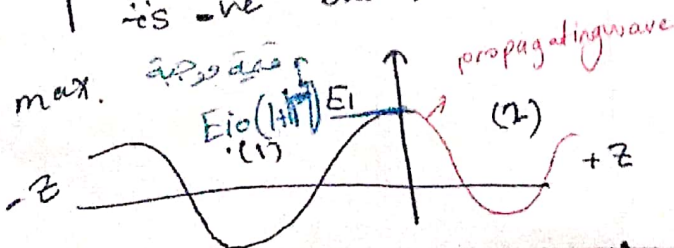 is -ve
max. قيمة موجبة
propagating wave
Eio(1+|Γ|) E1
(1)
(2)
-Z
+Z